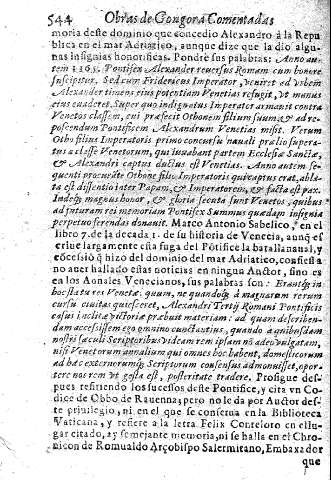 544 Obras de Gongora Comentadas
moria deste dominio que concedio Alexandro à la Repu
blica en el mar Adriatico, aunque dize que la diò algu-
nas insignias honorificas. Pondrè sus palabras: Anno au-
tem 1165. Pontifex Alexander reuersus Romam cum honore
suscipitur. Sed cum Fridericus Imperator, veniret ad vrbem
Alexander timens eius potentiam Venetias refugit, vt manus
eius euaderet. Super quo indignatus Imperator armauit contra
Venetos classem, cui præfecit Othonem filium suum, & ad re-
poscendum Pontificem Alexandrum Venetias misit. Verum
Otho filius Imperatoris primo concursu nauali prælio supera-
tus a classe Venetorum, qui iuuabant partem Ecclesiæ Sanctæ,
& Alexandri captus ductus est Venetias. Anno autem se-
quenti procurãte Othone filio Imperatoris qui captus erat, abla-
ta est dissentio inter Papam, & Imperatorem, & facta est pax.
Indeq; magnus honor, & gloria secuta sunt Venetos, quibus
ad futuram rei memoriam Pontifex Summus quædam insignia
perpetuo ferenda donauit. Marco Antonio Sabelico, en el
libro 7. de la decada 1. de su historia de Venecia, aunq̃ es
criue largamente esta fuga del Põtifice la batalla naual, y
cõcessiõ q̃ hizo del dominio del mar Adriatico, confiessa
no auer hallado estas noticias en ningun Auctor, sino es
en los Annales Venecianos, sus palabras son: Erantq; in
hoc statu res Venetæ. quum, ne quando q̃ à magnarum rerum
cursu ciuitas quiesceret, Alexandri Tertij Romani Pontificis
casus inclitæ victoriæ præbuit materiam: ad quam describen-
dam accessissem ego omnino cunctantius, quando à quibusdam
nostri sæculi Scriptoribus videam rem ipsam nõ adeo vulgatam,
nisi Venetorum annalium qui omnes hoc habent, domesticorum
ad hæc externorumq; Scriptorum consensus admonuisset, opor-
tere vt rem vt gesta est, posteritate tradere. Prosigue des-
pues refiriendo los sucessos deste Pontifice, y cita vn Co-
dice de Obbo de Rauenna; pero no le da por Auctor des-
te priuilegio, ni en el que se conserua en la Biblioteca
Vaticana, y refiere a la letra Felix Conteloro en el lu-
gar citado, ay semejante memoria, ni se halla en el Chro-
nicon de Romualdo Arçobispo Salernitano, Embaxador
que